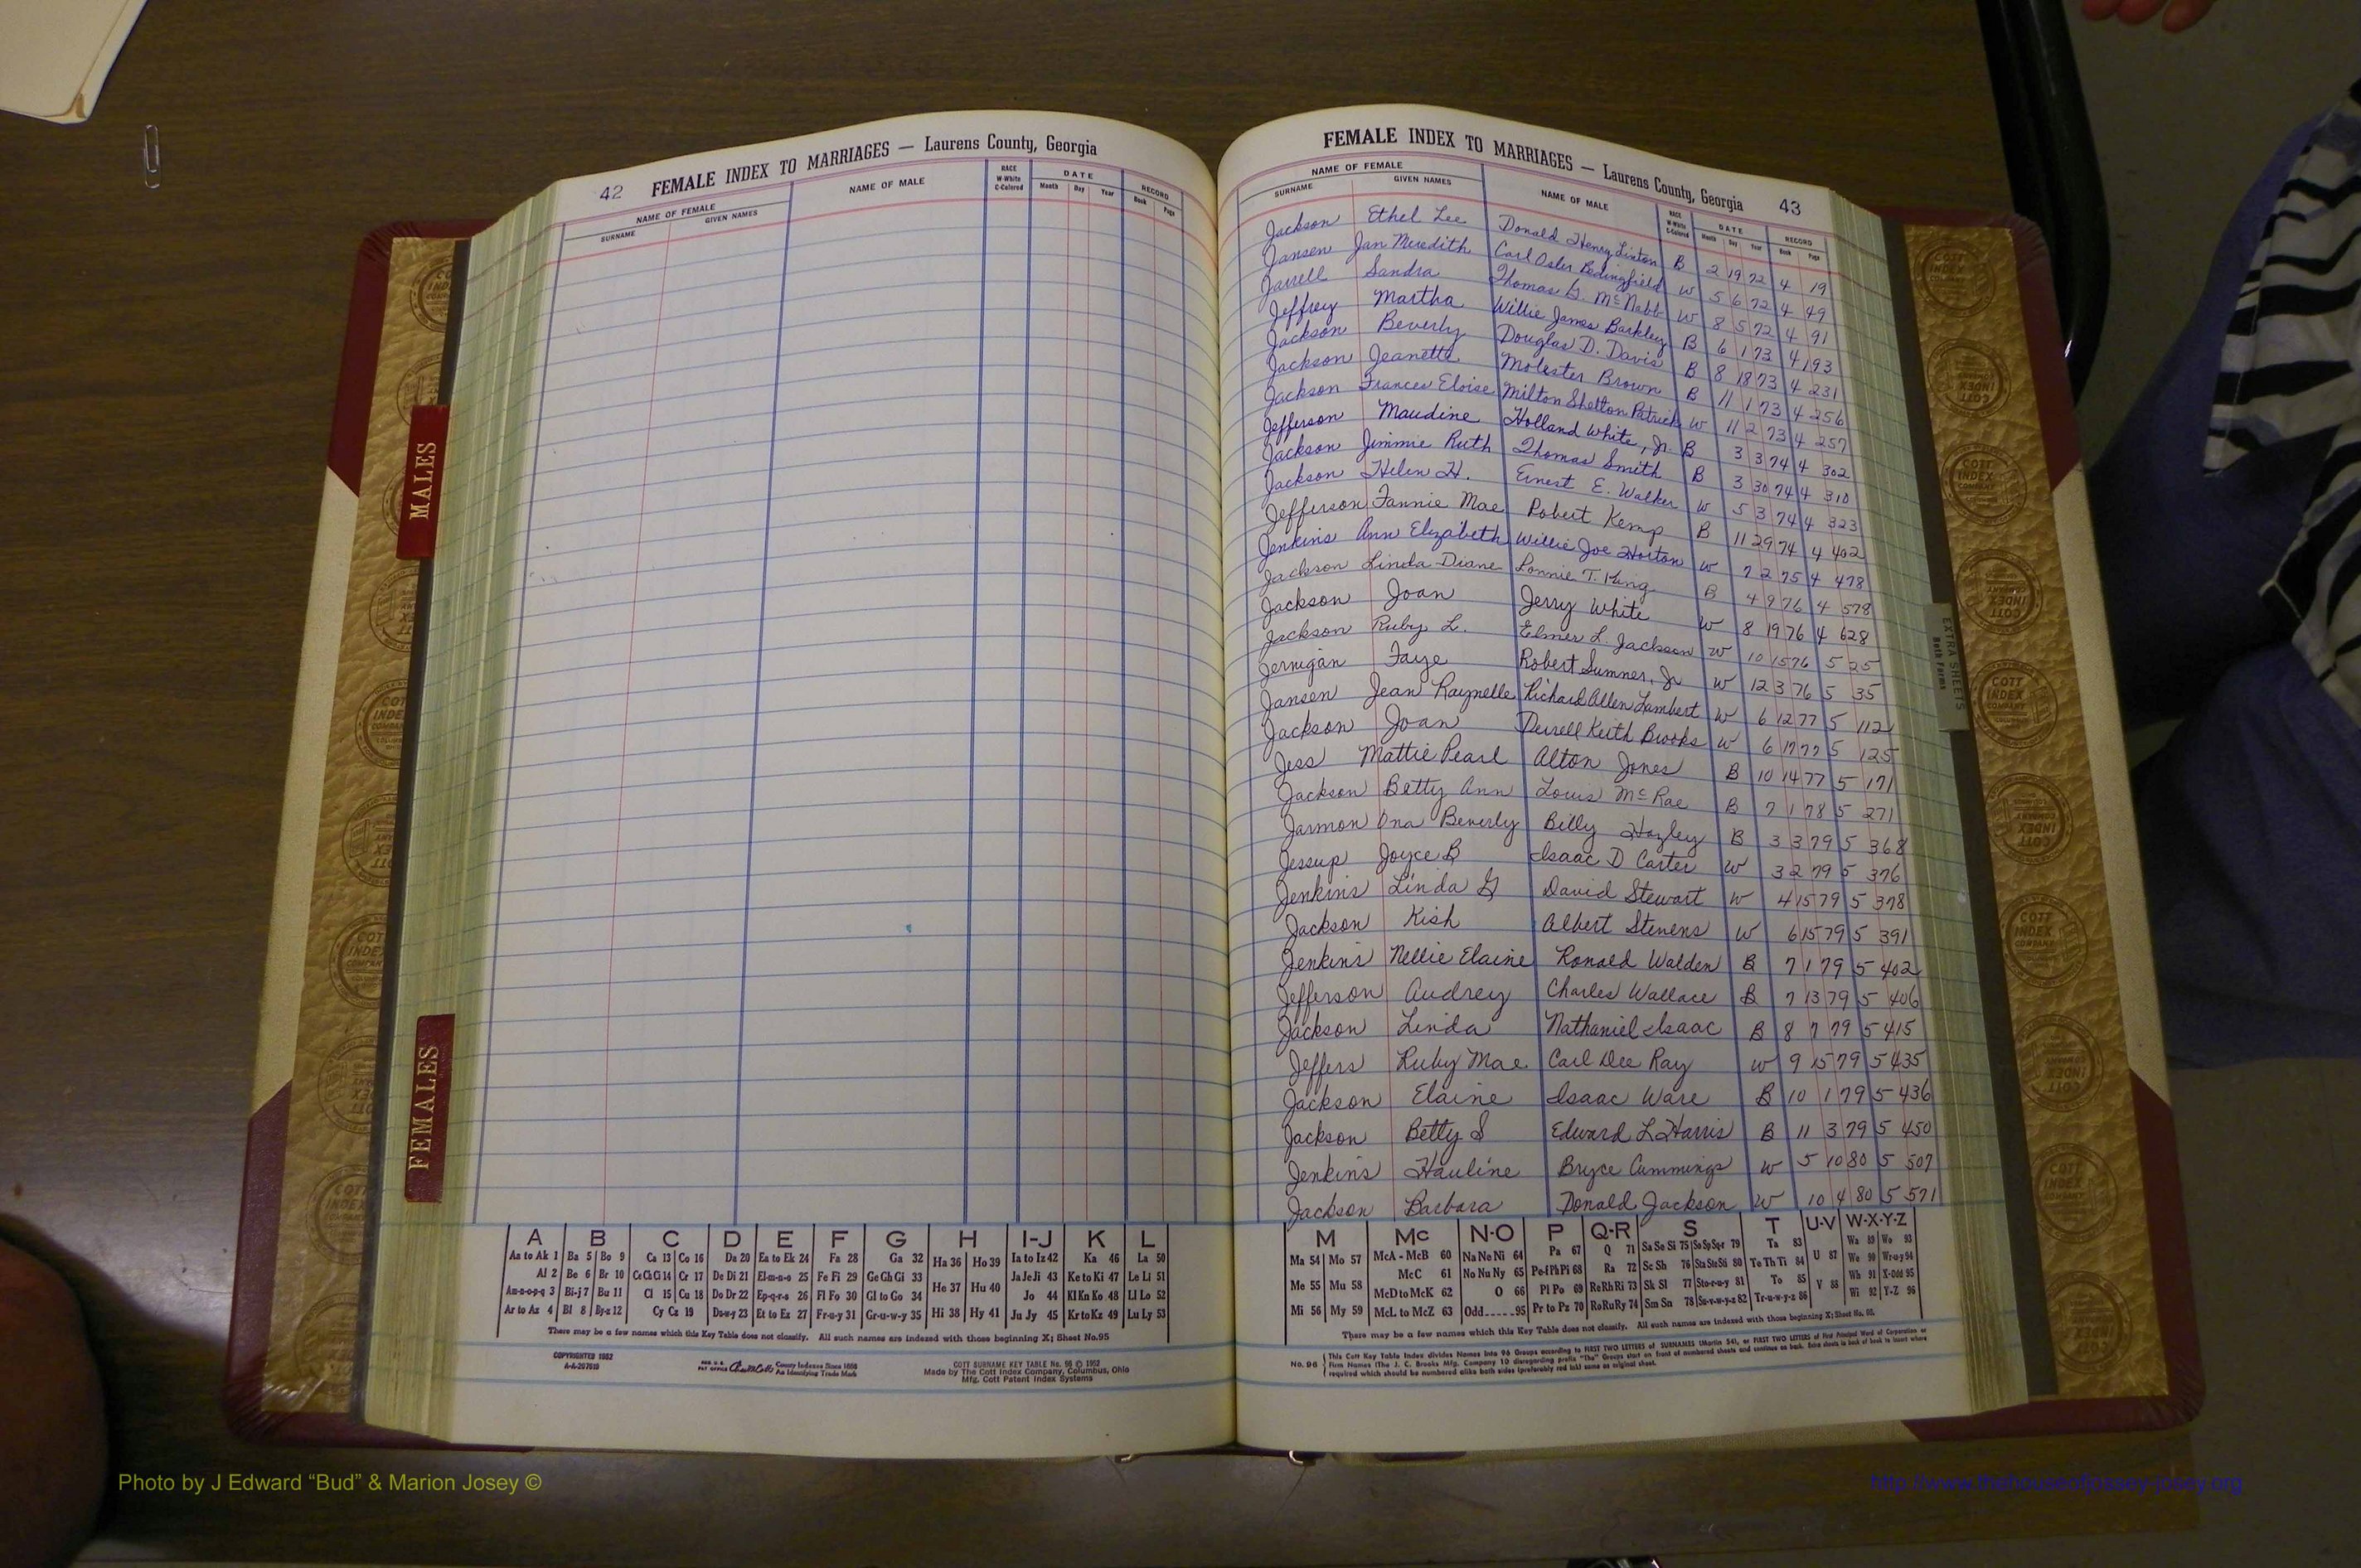 42 FEMALE INDEX TO MARRIAGES — Laurens County, Georgia
NAME OF FEMALE NAME OF MALE RACE W-White C-Colored DATE RECORD
SURNAME GIVEN NAMES Month Day Year Book Page
FEMALE INDEX TO MARRIAGES — Laurens County, Georgia 43
NAME OF FEMALE NAME OF MALE RACE W-White C-Colored DATE RECORD
SURNAME GIVEN NAMES Month Day Year Book Page
Jackson Ethel Lee Donald Henry Linton B 2 19 72 4 19
Jansen Jan Meredith Carl Osler Bedingfield W 5 6 72 4 49
Jarrell Sandra Thomas G. McNabb W 8 5 72 4 91
Jeffrey Martha Willie James Barkley B 6 1 73 4 193
Jackson Beverly Douglas D. Davis B 8 18 73 4 231
Jackson Jeanette Molester Brown B 11 1 73 4 256
Jackson Frances Eloise Milton Shelton Patrick W 11 2 73 4 257
Jefferson Maudine Holland White, Jr. B 3 3 74 4 302
Jackson Jimmie Ruth Thomas Smith B 3 30 74 4 310
Jackson Helen H. Ernest E. Walker W 5 3 74 4 323
Jefferson Fannie Mae Robert Kemp B 11 29 74 4 402
Jenkins Ann Elizabeth Willie Joe Horton W 7 2 75 4 478
Jackson Linda Diane Lonnie T. King B 4 9 76 4 578
Jackson Joan Jerry White W 8 19 76 4 628
Jackson Ruby L. Elmer L. Jackson W 10 15 76 5 25
Jernigan Faye Robert Sumner, Jr W 12 3 76 5 35
Jansen Jean Raynelle Richard Allen Lambert W 6 12 77 5 112
Jackson Joan Derrell Keith Brooks W 6 17 77 5 125
Jess Mattie Pearl Alton Jones B 10 14 77 5 171
Jackson Betty Ann Louis McRae B 7 1 78 5 271
Jarmon Ona Beverly Billy Hazley B 3 3 79 5 368
Jessup Joyce B Isaac D Carter W 3 2 79 5 376
Jenkins Linda G David Stewart W 4 15 79 5 378
Jackson Kish Albert Stevens W 6 15 79 5 391
Jenkins Nellie Elaine Ronald Walden B 7 1 79 5 402
Jefferson Audrey Charles Wallace B 7 13 79 5 406
Jackson Linda Nathaniel Isaac B 8 7 79 5 415
Jeffers Ruby Mae Carl Dee Ray W 9 15 79 5 435
Jackson Elaine Isaac Ware B 10 1 79 5 436
Jackson Betty S Edward L Harris B 11 3 79 5 450
Jenkins Hauline Bryce Cummings W 5 10 80 5 507
Jackson Barbara Donald Jackson W 10 4 80 5 571
MALES
FEMALES
EXTRA SHEETS
Both Forms
A B C D E F G H I-J K L
Aa to Ak 1 Ba 5 Bo 9 Ca 13 Co 16 Da 20 Ea to Ek 24 Fa 28 Ga 32 Ha 36 Ho 39 Ia to Iz 42 Ka 46 La 50
Al 2 Be 6 Br 10 Ce Ch Ci 14 Cr 17 De Di 21 El-m-n-o 25 Fe Fi 29 Ge Gh Gi 33 He 37 Hu 40 Ja Je Ji 43 Ke to Ki 47 Le Li 51
Am-n-o-p-q 3 Bi-j 7 Bu 11 Cl 15 Cu 18 Do Dr 22 Ep-q-r-s 26 Fl Fo 30 Gl to Go 34 Jo 44 Kl Kn Ko 48 Ll Lo 52
Ar to Az 4 Bl 8 By-z 12 Cy Cz 19 Du-w-y 23 Et to Ez 27 Fr-u-y 31 Gr-u-w-y 35 Hi 38 Hy 41 Ju Jy 45 Kr to Kz 49 Lu Ly 53
There may be a few names which this Key Table does not classify. All such names are indexed with those beginning X; Sheet No.95
COPYRIGHTED 1952
A-A-207619
County Indexes Since 1888
An Identifying Trade Mark
COTT SURNAME KEY TABLE No. 96 © 1952
Made by The Cott Index Company, Columbus, Ohio
Mfg. Cott Patent Index Systems
M Mc N-O P Q-R S T U-V W-X-Y-Z
Ma 54 Mo 57 McA - McB 60 Na Ne Ni 64 Pa 67 Q 71 Sa Se Si 75 So Sp Sq-r 79 Ta 83 Wa 89 Wo 93
McC 61 No Nu Ny 65 Pe-f Ph Pi 68 Ra 72 Sc Sh 76 Sta Ste Sti 80 Te Th Ti 84 U 87 We 90 Wr-u-y 94
Me 55 Mu 58 McD to McK 62 O 66 Pl Po 69 Re Rh Ri 73 Sk Sl 77 Sto-r-u-y 81 To 85 Wh 91 X-Odd 95
Mi 56 My 59 McL to McZ 63 Odd 95 Pr to Pz 70 Ro Ru Ry 74 Sm Sn 78 Su-v-w-y-z 82 Tr-u-w-y-z 86 V 88 Wi 92 Y-Z 96
There may be a few names which this Key Table does not classify. All such names are indexed with those beginning X; Sheet No. 95.
No. 96 This Cott Key Table Index divides Names into 96 Groups according to FIRST TWO LETTERS of SURNAMES (Martin 54), or FIRST TWO LETTERS of First Principal Word of Corporation or
Firm Names (The J. C. Brooks Mfg. Company 10 disregarding prefix "The") Groups start on front of numbered sheets and continue on back. Extra sheets in back of book to insert where
required which should be numbered alike both sides (preferably red ink) same as original sheet.
Photo by J Edward “Bud” & Marion Josey ©
http://www.thehouseofjossey-josey.org